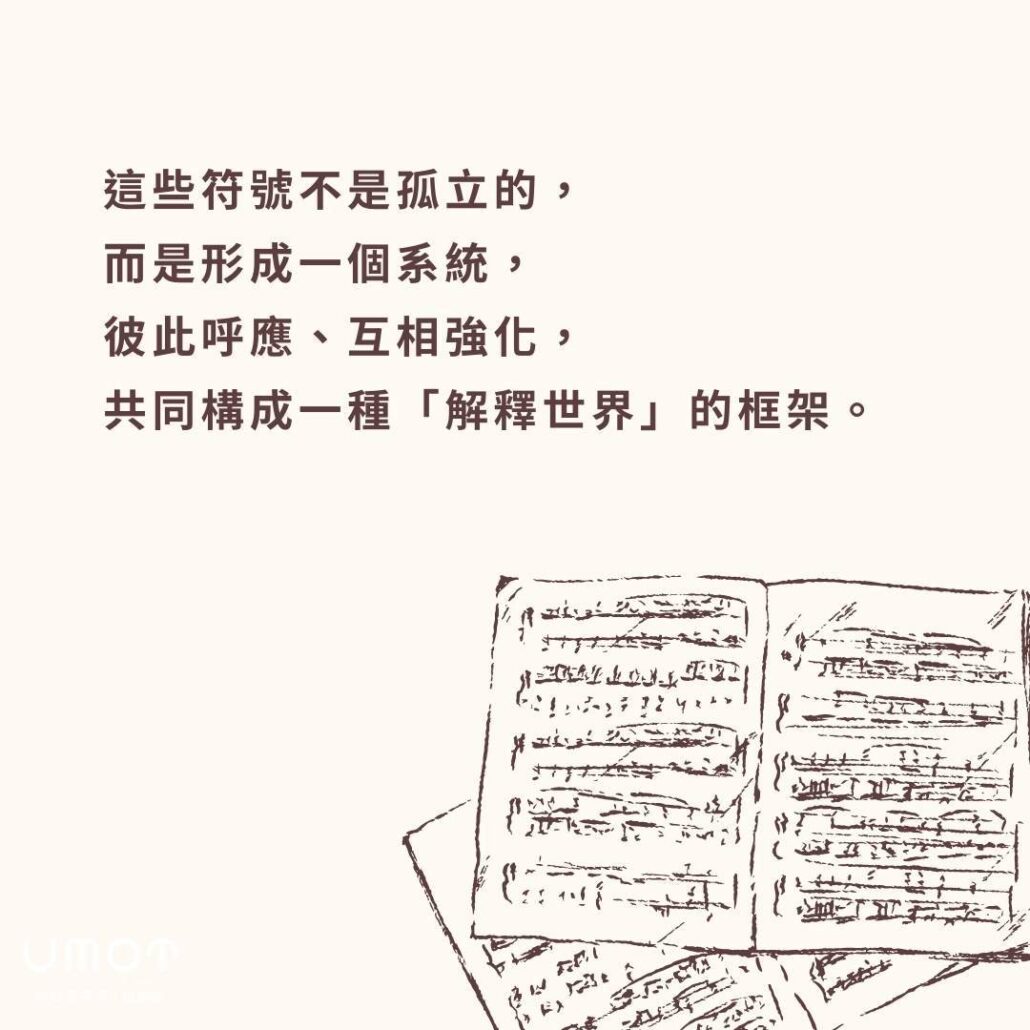 這些符號不是孤立的，
而是形成一個系統，
彼此呼應、互相強化，
共同構成一種「解釋世界」的框架。
UMOT